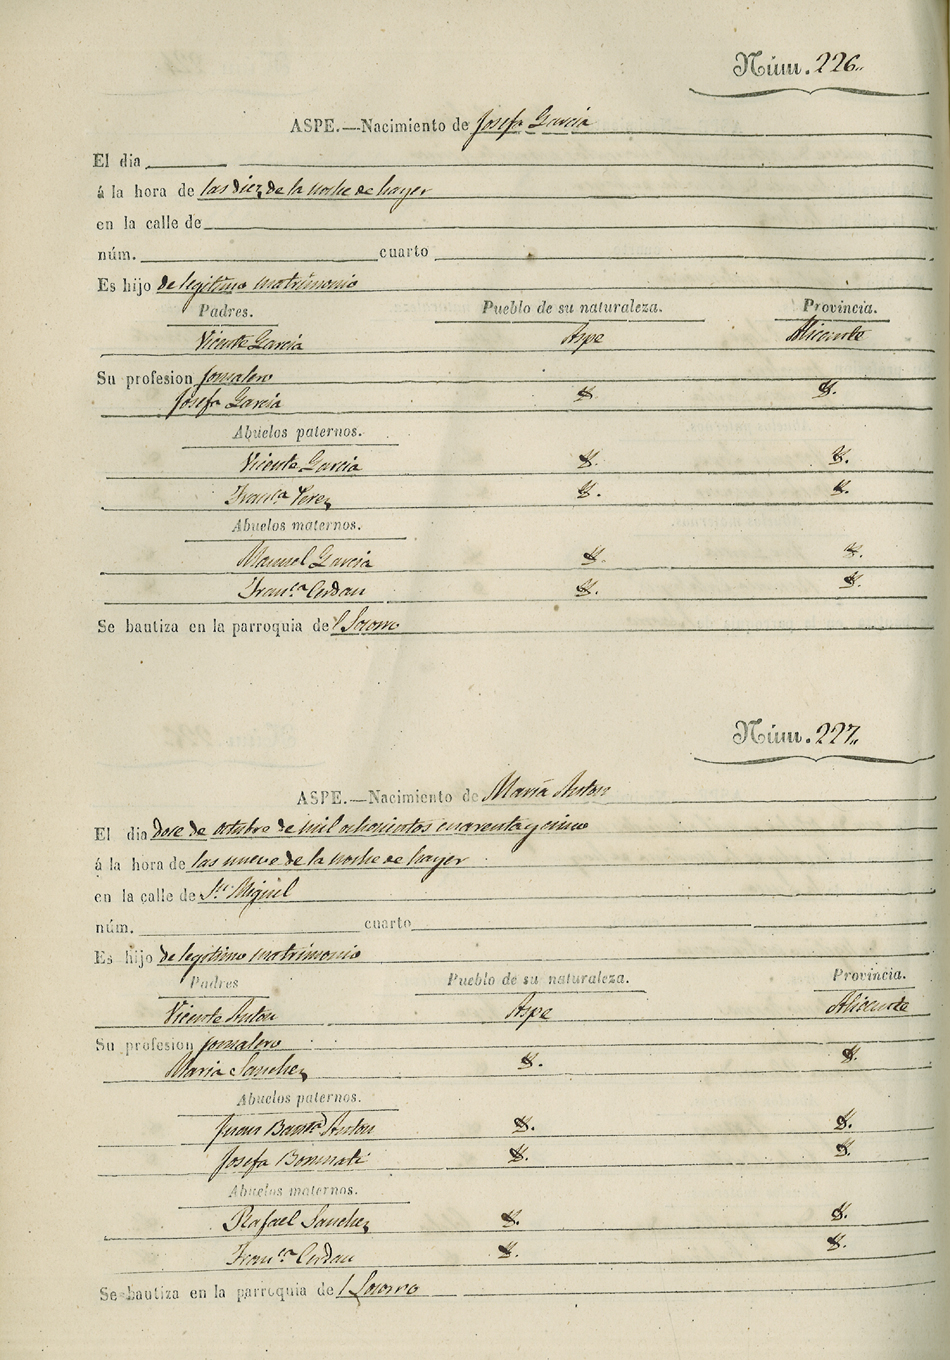 Núm. 226.
ASPE.—Nacimiento de Josefa Garcia
El dia
á la hora de las diez de la noche de hayer
en la calle de
núm. cuarto
Es hijo de legitimo matrimonio
Padres. Pueblo de su naturaleza. Provincia.
Vicente Garcia Aspe Alicante
Su profesion jornalero
Josefa Garcia
Abuelos paternos.
Vicente Garcia
Franca Perez
Abuelos maternos.
Manuel Garcia
Franca Cerdan
Se bautiza en la parroquia del Socorro
Núm. 227.
ASPE.—Nacimiento de Maria Anton
El dia doce de octubre de mil ochocientos cuarenta y cinco
á la hora de las nueve de la noche de hayer
en la calle de Sn Miguel
núm. cuarto
Es hijo de legitimo matrimonio
Padres Pueblo de su naturaleza. Provincia.
Vicente Anton Aspe Alicante
Su profesion jornalero
Maria Sanchez
Abuelos paternos.
Juan Bauta Anton
Josefa Bonmati
Abuelos maternos.
Rafael Sanchez
Franca Cerdan
Se bautiza en la parroquia del Socorro